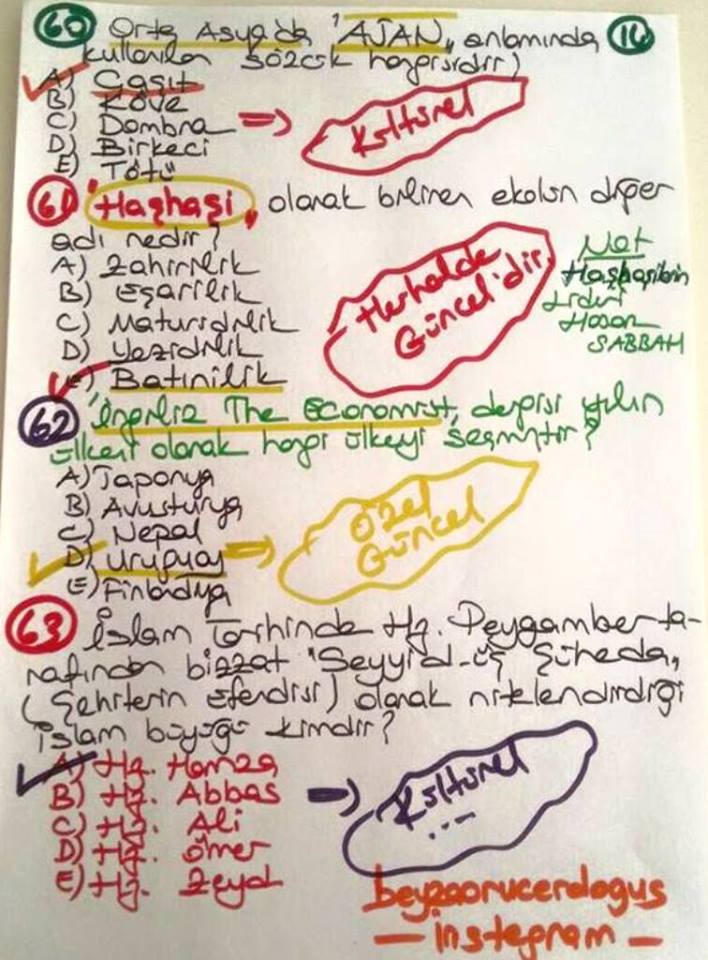 60 Orta Asya'da 'AJAN,, anlamında 16
kullanılan sözcük hangisidir)
A) Casıt
B) Köve
C) Dombra => Kültürel
D) Birkeci
E) Tötü
61 'Haşhaşi, olarak bilinen ekolün diğer
adı nedir?
A) Zahirilik
B) Eşarilik
C) Maturidilik
D) Yezidilik
E) Batınilik
Herhalde
Güncel'dir.
Not
Haşhaşibin
Lideri
Hasan
SABBAH
62 'İngiliz The Economist, dergisi yılın
ülkesi olarak hangi ülkeyi seçmiştir?
A) Japonya
B) Avusturya
C) Nepal
D) Uruguay => Özel
Güncel
E) Finladiya
63 İslam Tarihinde Hz. Peygamber ta-
rafından bizzat 'Seyyid-üş Şüheda,
(Şehitlerin Efendisi) olarak nitelendirdiği
İslam büyüğü kimdir?
A) Hz. Hamza
B) Hz. Abbas => Kültürel
...
C) Hz. Ali
D) Hz. Ömer
E) Hz. Zeyd
beyzaorucerdogus
— instegram —